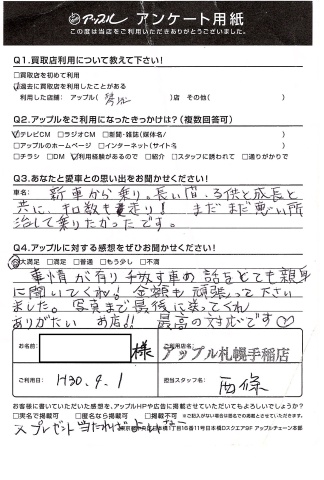 アップル アンケート用紙
この度は当店をご利用いただきありがとうございました。
Q1.買取店利用について教えて下さい!
□買取店を初めて利用
☑過去に買取店を利用したことがある
利用した店舗: アップル( )店 その他( )
Q2.アップルをご利用になったきっかけは?(複数回答可)
☑テレビCM □ラジオCM □新聞・雑誌(媒体名/ )
□アップルのホームページ □インターネット(サイト名 )
□チラシ □DM ☑利用経験があるので □紹介 □スタッフに誘われて □通りがかりで
Q3.あなたと愛車との思い出をお聞かせください!
車名:
新車から乗り。長い間、子供と成長と
共に、キロ数も走り! まだまだ悪い所
治して乗りたかったです。
Q4.アップルに対する感想をぜひお聞かせください!
☑大満足 □満足 □普通 □もう少し □不満
事情が有り手放す車の話をとても親身
に聞いてくれ! 金額も頑張って下さい
ました。写真まで最後に送ってくれ
ありがたい お店!! 最高の対応です♡
お名前: 様
ご利用店名:
アップル札幌手稲店
ご利用日: H30.9.1
担当スタッフ名: 西條
お客様に書いていただいた感想を、アップルHPや広告に掲載させていただいてもよろしいでしょうか?
□実名で掲載可 □匿名なら掲載可 □掲載不可
プレゼント当たれば
東京都中央区日本橋1丁目16番11号日本橋Dスクエア9F アップルチェーン本部